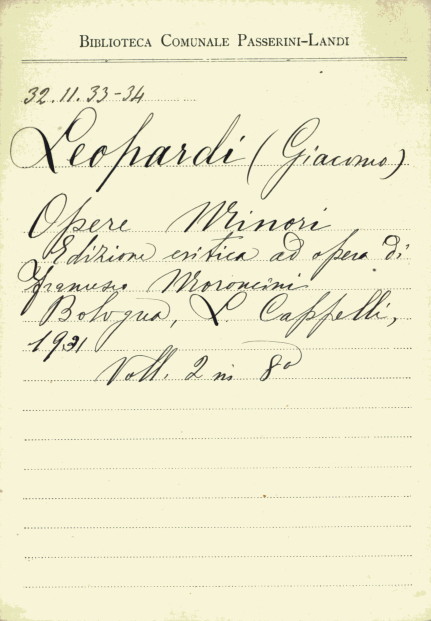 BIBLIOTECA COMUNALE PASSERINI-LANDI
32.11.33-34
Leopardi (Giacomo)
Opere Minori
Edizione critica ad opera di
Francesco Moroncini
Bologna, L. Cappelli,
1931
Voll. 2 in 8º